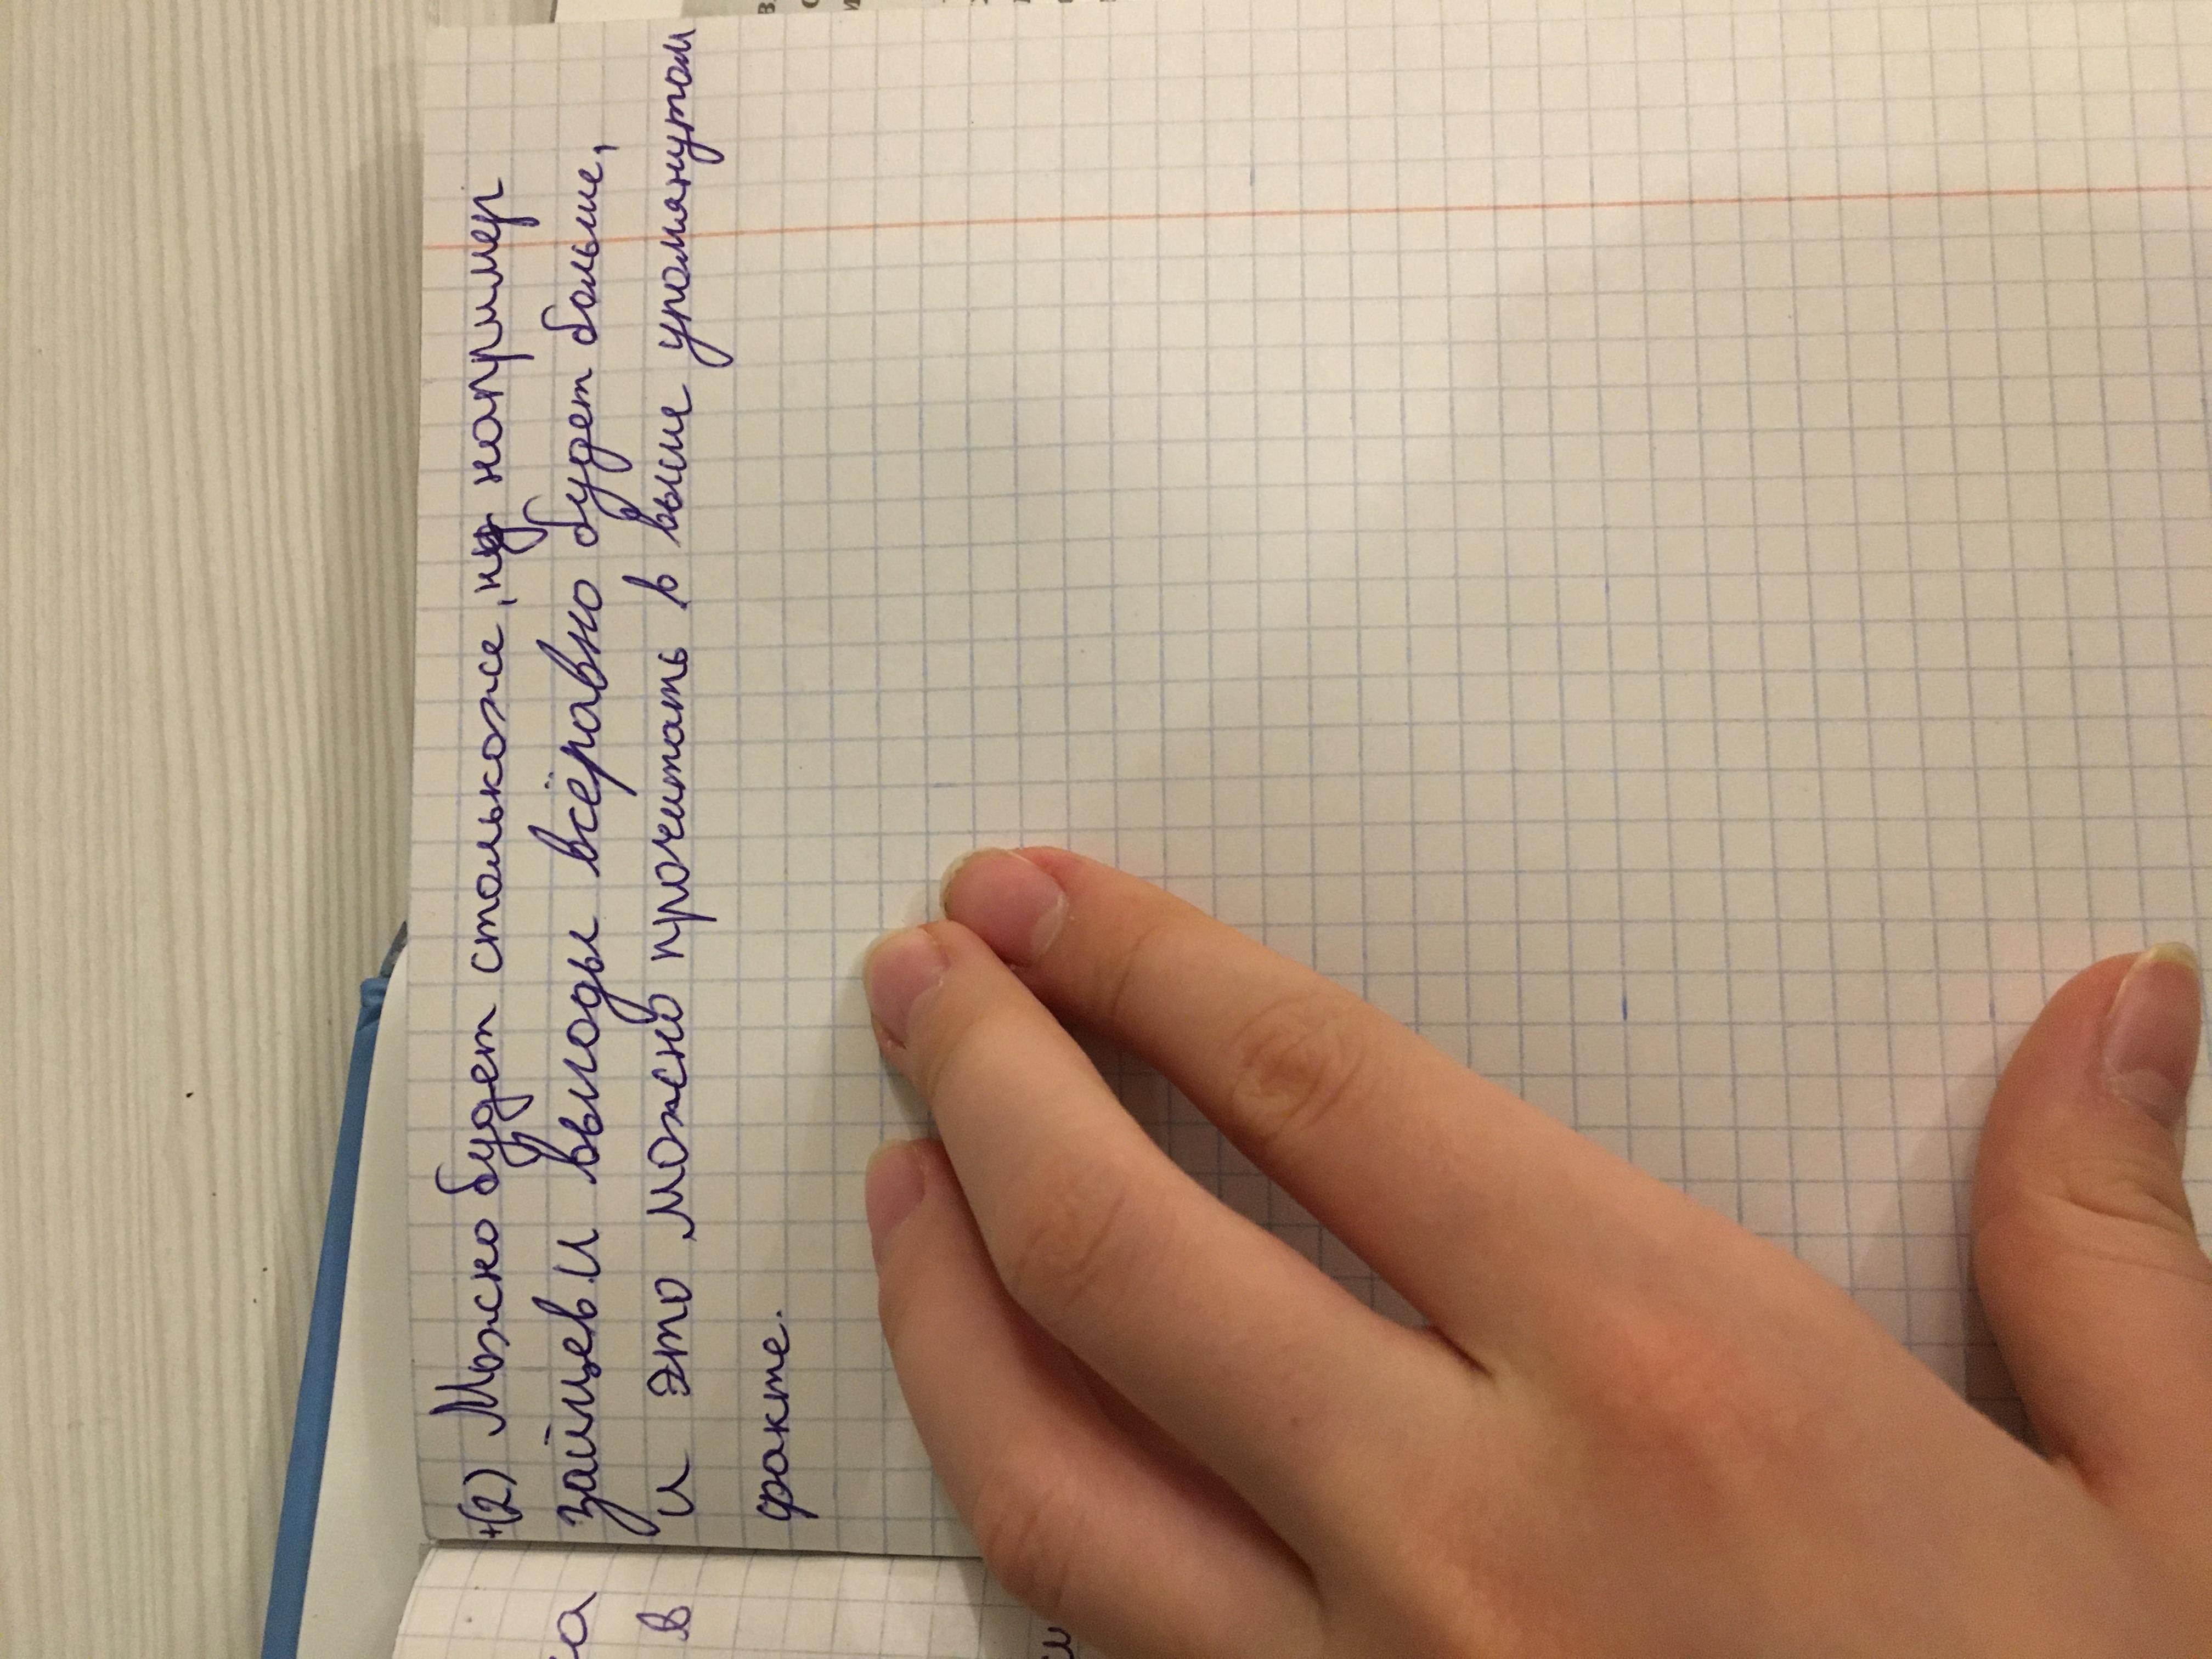 +(2) Можно будет столькоже, например
зайцев и выгоды всёравно будет больше,
и это можно прочитать в выше упомянутом
факте.
в